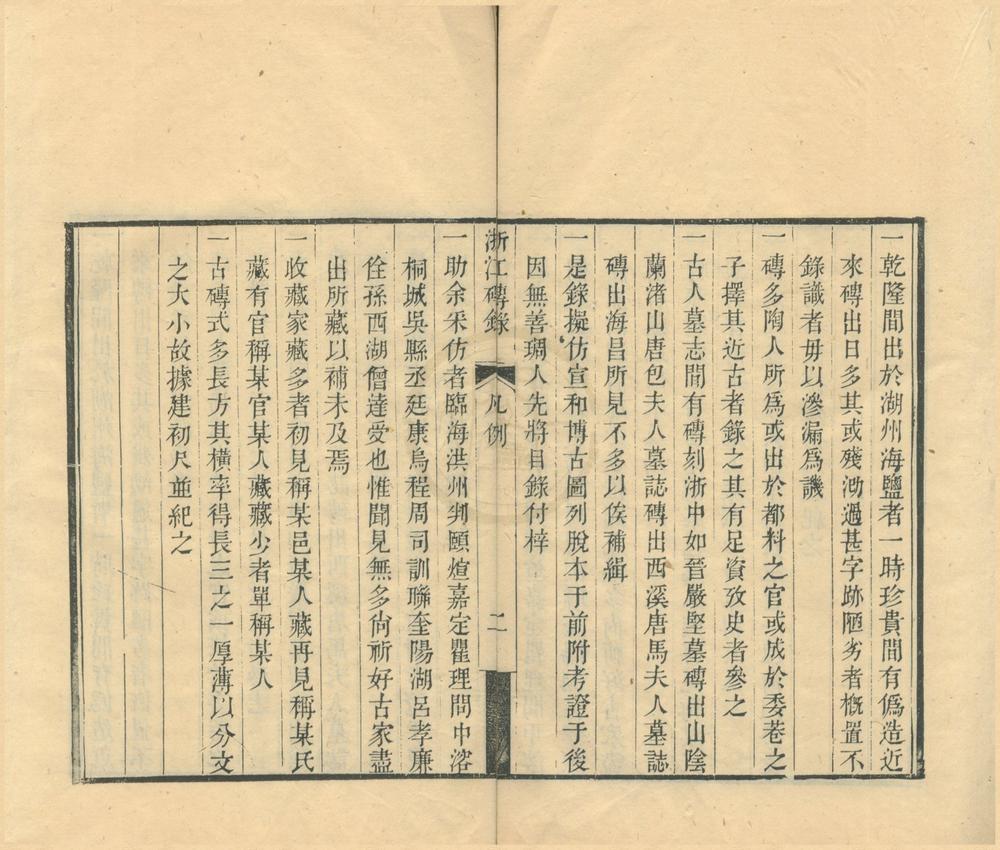 一乾隆間出於湖州海鹽者一時珍貴間有僞造近
來磚出日多其或殘泐過甚字跡陋劣者概置不
錄識者毋以滲漏爲譏
一磚多陶人所爲或出於都料之官或成於委巷之
子擇其近古者錄之其有足資攷史者參之
一古人墓志間有磚刻浙中如晉嚴堅墓磚出山陰
蘭渚山唐包夫人墓誌磚出西溪唐馬夫人墓誌
磚出海昌所見不多以俟補緝
一是錄擬仿宣和博古圖列脫本于前附考證于後
因無善琱人先將目錄付梓
浙江磚錄 凡例 二
一助余采仿者臨海洪州判頤煊嘉定瞿理問中溶
桐城吳縣丞廷康烏程周司訓聯奎陽湖呂孝廉
佺孫西湖僧達受也惟聞見無多尙祈好古家盡
出所藏以補未及焉
一收藏家藏多者初見稱某邑某人藏再見稱某氏
藏有官稱某官某人藏藏少者單稱某人
一古磚式多長方其橫率得長三之一厚薄以分文
之大小故據建初尺並紀之